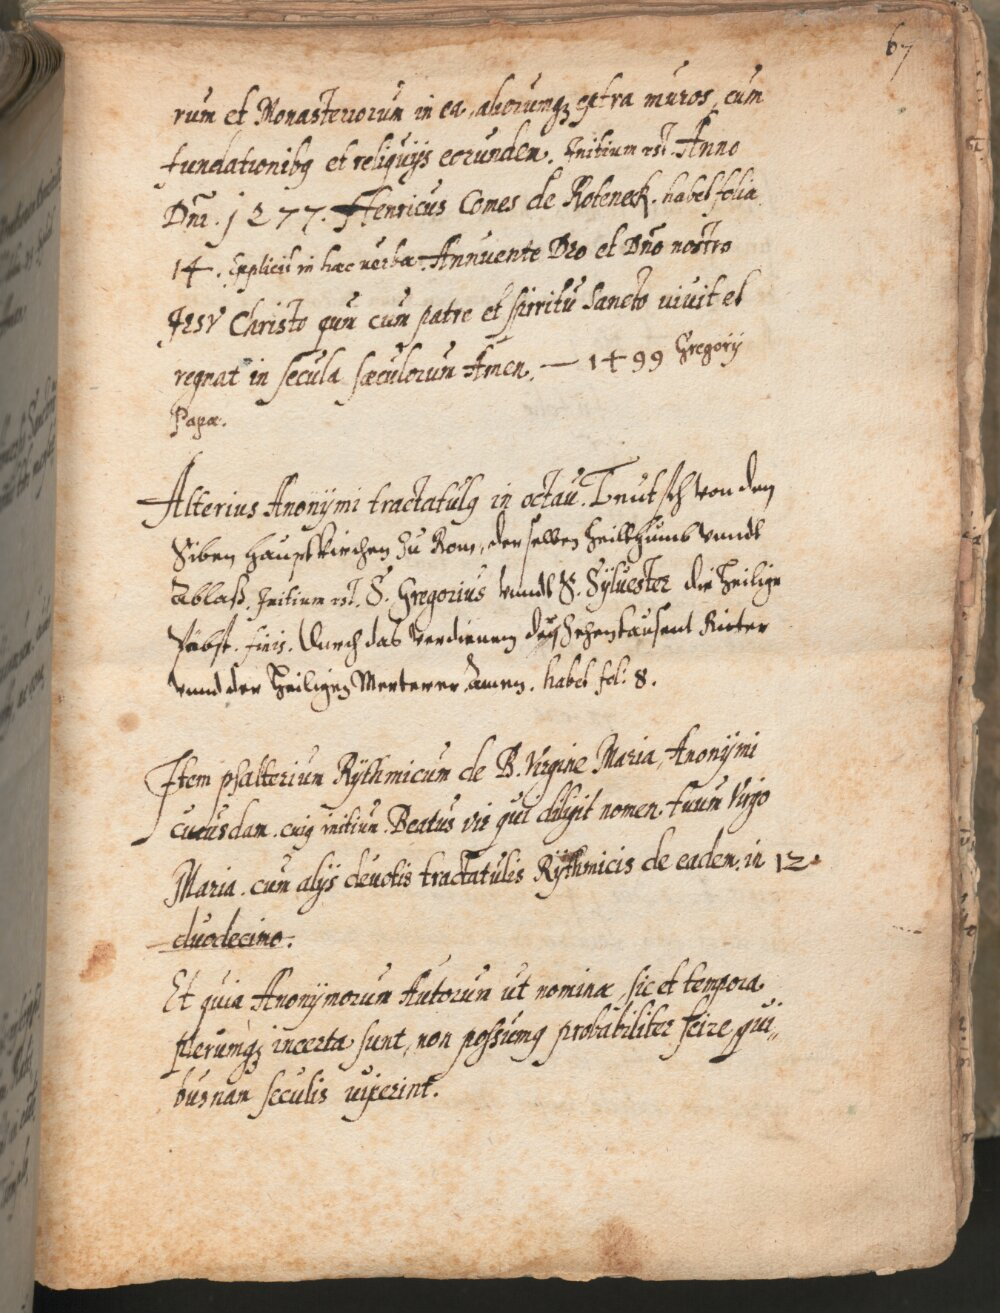 67
rum et Monasteriorum in ea, aliorumq; extra muros, cum
fundationibꝰ et reliquijs eorunden. Initium est. Anno
Dñi. 1277. Henricus Comes de Roteneck. habet folia
14. Explicit in hæc verba. Annuente Deo et Dño nostro
JESV Christo qui cum patre et spiritu Sancto viuit et
regnat in secula sæculorum Amen. — 1499 Gregorij
Papæ.
Alterius Anonÿmi tractatulꝰ in octau. Teutsch von den
Siben Hauptkirchen zu Rom, derselben Heilthumb vnndt
Ablaß. Initium est. S. Gregorius vnndt S. Syluester die Heilige
Päbst. finis. Durch das verdienen der Zehentausent Ritter
vnnd der Heiligen Merterer Amen. habet fol: 8.
Item psalterium Rÿthmicum de B. Virgine Maria, Anonÿmi
cuiusdam. cuiꝰ initium. Beatus vir qui diligit nomen tuum Virgo
Maria. cum alijs deuotis tractatulis Rÿthmicis de eaden. in 12.
duodecimo.
Et quia Anonÿmorum Autorum ut nomina sic et tempora
plerumq; incerta sunt, non possumꝰ probabiliter scire, qui„
busnam seculis uixerint.